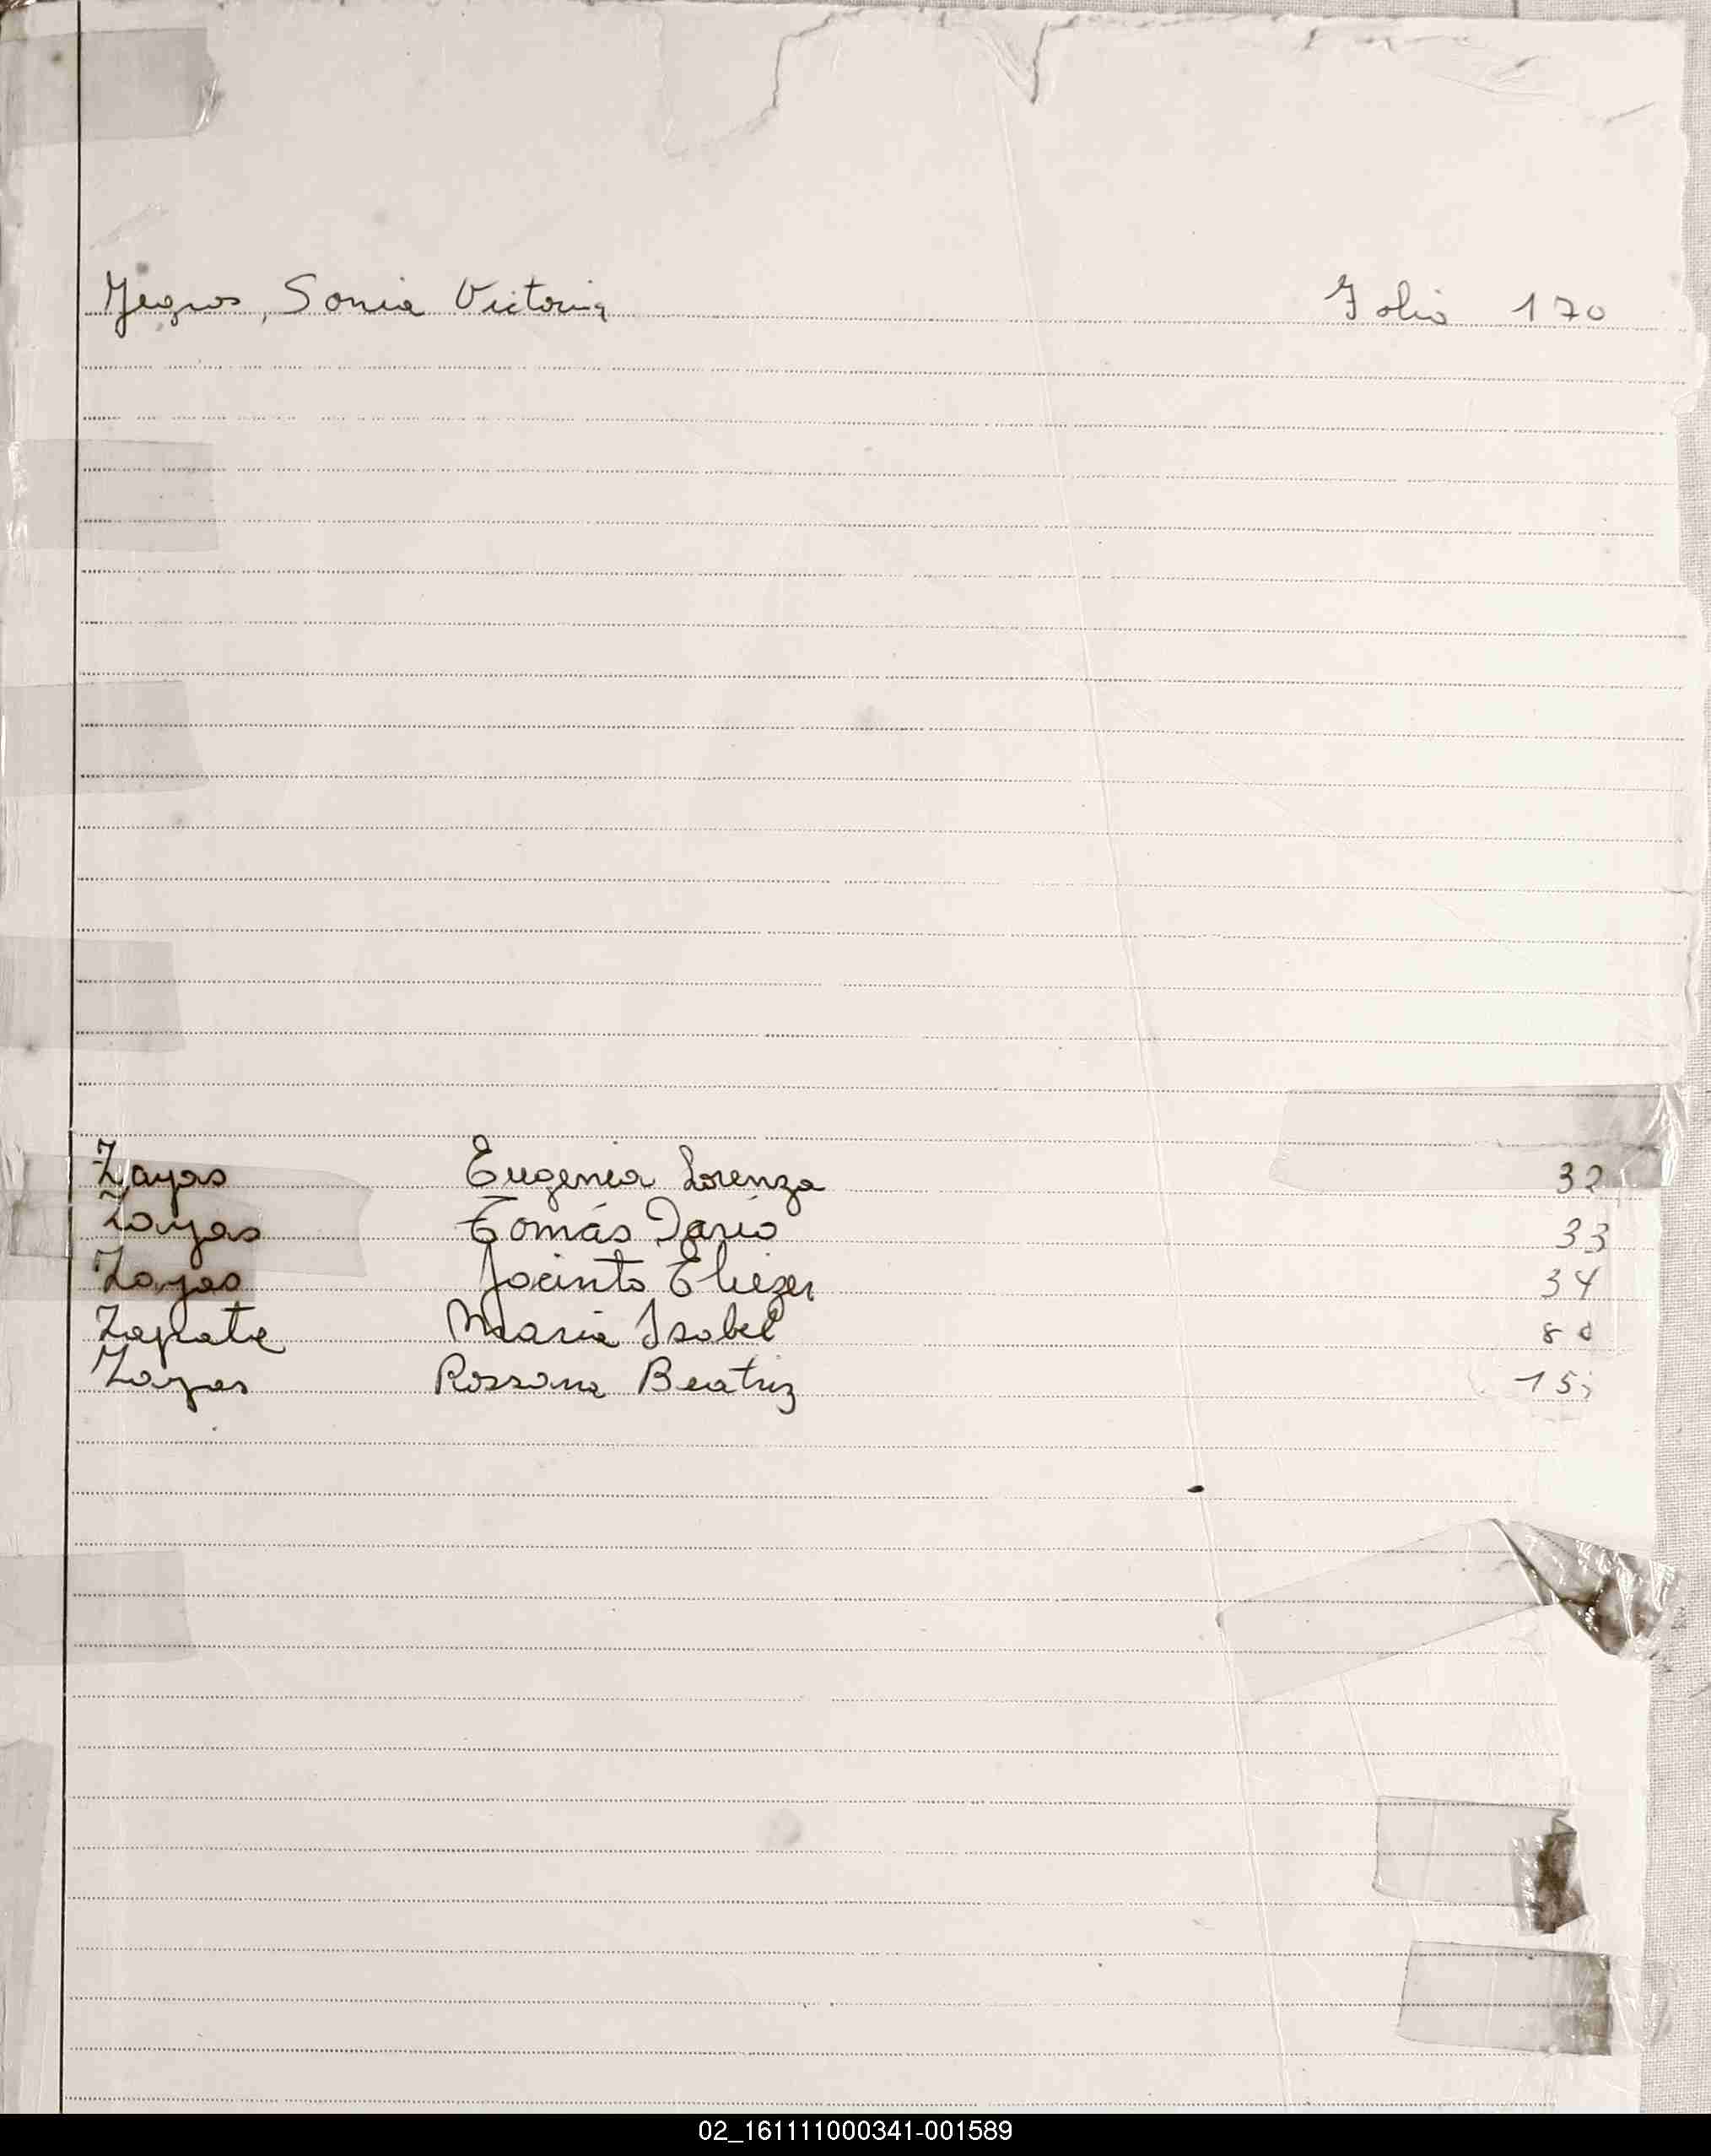 Yegros, Sonia Victoria Folio 170
Zayas Eugenia Lorenza 32
Zayas Tomás Dario 33
Zayas Jacinto Eliezer 34
Zapata Maria Isabel
Zayas Rossana Beatriz
02_161111000341-001589